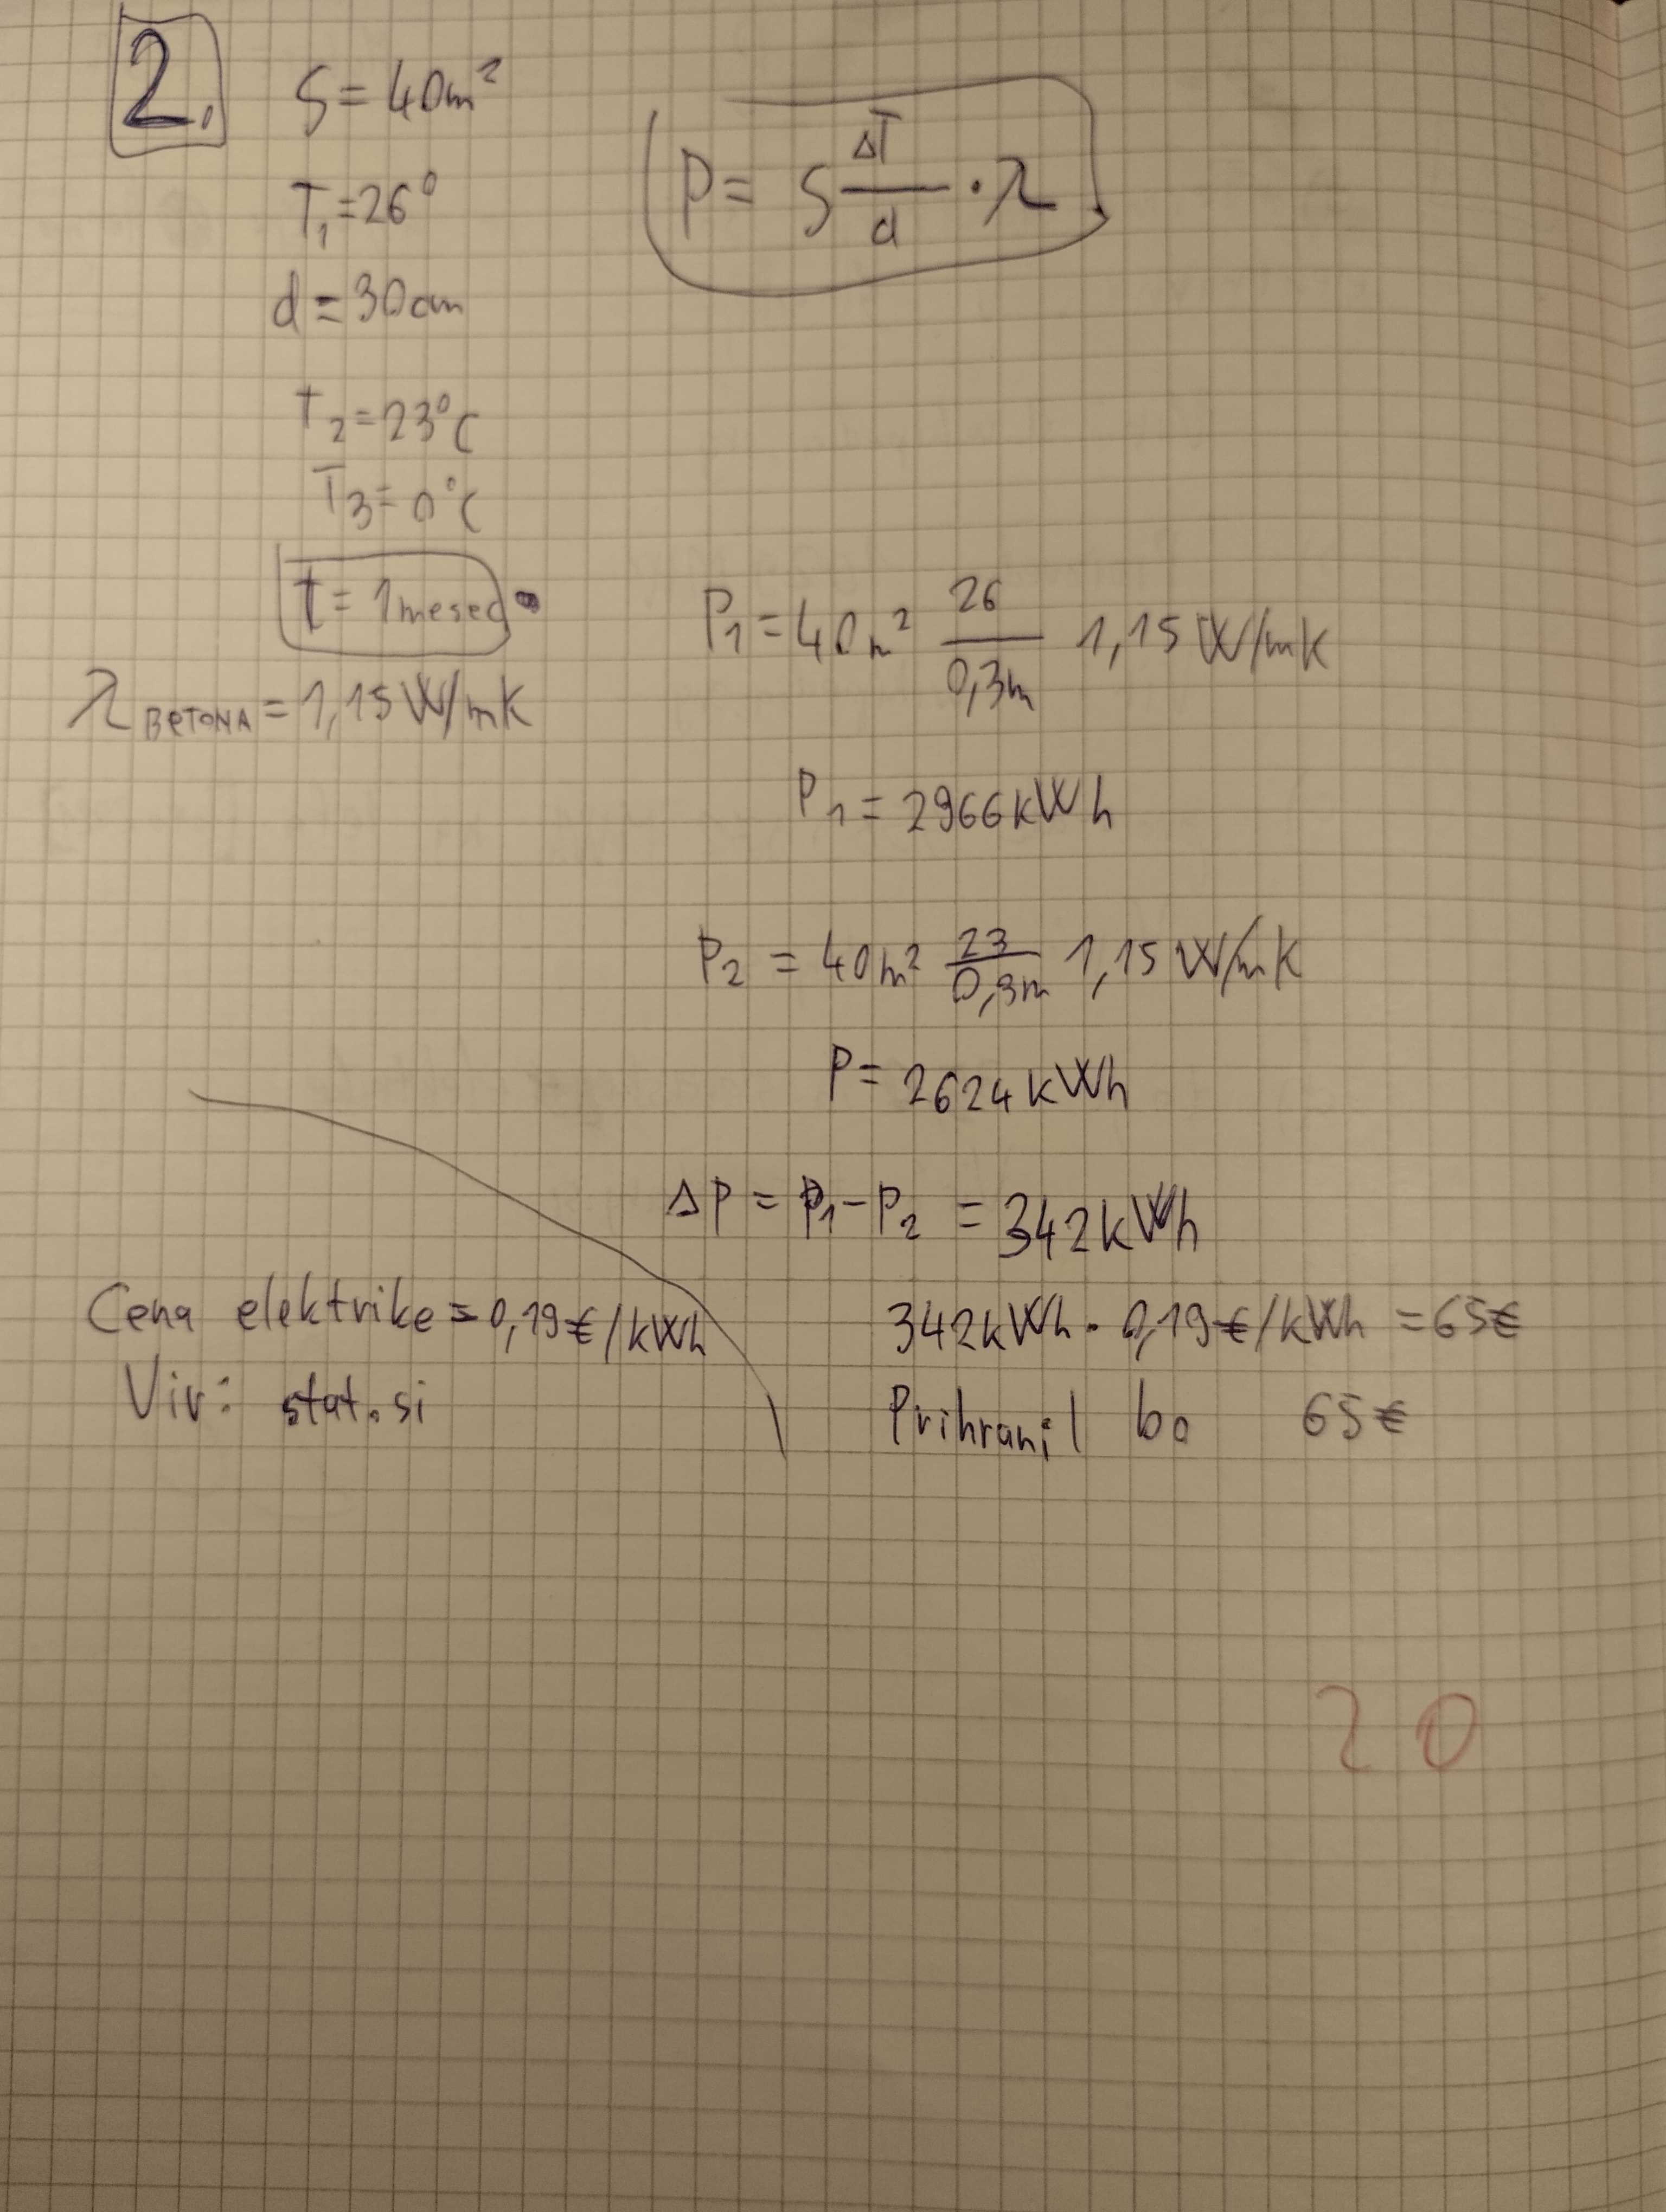 2.
S = 40m²
T₁ = 26°
d = 30cm
T₂ = 23°C
T₃ = 0°C
t = 1mesec
λ BETONA = 1,15 W/mK
P = S ΔT/d · λ
P₁ = 40m² 26/0,3m 1,15 W/mK
P₁ = 2966kWh
P₂ = 40m² 23/0,3m 1,15 W/mK
P = 2624kWh
ΔP = P₁ - P₂ = 342kWh
Cena elektrike = 0,19€/kWh
Vir: stat.si
342kWh · 0,19€/kWh = 65€
Prihranil bo 65€
20